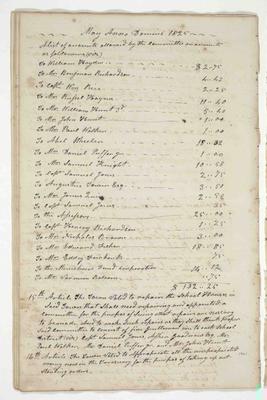 May Anno Domini 1825
A list of accounts allowed by the committee on accounts
as follows (viz)
To William Haydn $2-75
To Mr. Benjamin Richardson 4-42
To Capt. Wm Rice 2-25
To Mr. Rufus Haynes 11-40
To Mr. William Hunt 3d 5-40
To Mr. John Hunt 1-00
To Mr. Paul Walker 1-00
To Abel Wheeler 18-02
To Mr. Daniel Puffer 1-00
To Mr. Samuel Knight 10-58
To Capt. Samuel Jones 2-75
To Augustus Tower Esq. 3-50
To Mr. James 2-50
To Capt. Samuel Jones 35
To the Assessors 25-00
To Capt. Richardson 1-25
To Mr. Nicholas 3-00
To Mr. Edward 18-85
To Mr. Fairbank 75
To the Ministerial Fund Corporation 14-12
To Mr. 75
$132-25
15th Article. The Town Voted to repair the School Houses in
Said Town that shall need repairing and appointed a
committee for the purpose of seeing what repairs are necessary
to be made, and to make such repairs as they shall think proper
Said committee to consist of five, one to each School
district (viz) Capt. Samuel Jones, Mr.
Paul Walker, Mr. Daniel Puffer and Mr. John Hunt.
16th Article. The Town Voted to Appropriate all the unappropriated
money now in the Treasury for the purpose of taking up out
standing orders.